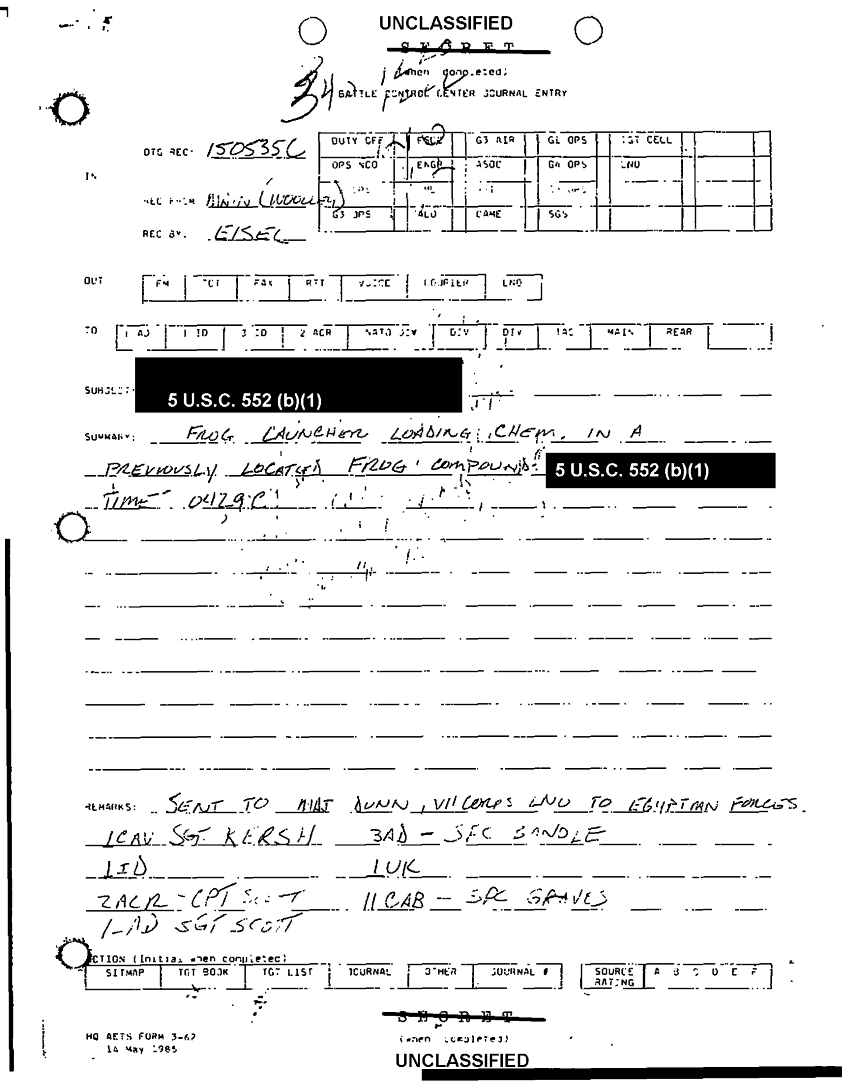 UNCLASSIFIED
SECRET
(when completed)
34
BATTLE CONTROL CENTER JOURNAL ENTRY
IN
DTG REC: 150535C
REC FROM MAIN (WOOLLEY)
REC BY. EISEL
DUTY OFF FSCE G3 AIR G2 OPS TGT CELL
OPS NCO ENGR ASOC G4 OPS LNO
G3 OPS ALO CAME SGS
OUT FM TCT FAX RTT VOICE COURIER LNO
TO 1 AD 1 ID 3 ID 2 ACR NATO DIV DIV DIV TAC MAIN REAR
SUBJECT: 5 U.S.C. 552 (b)(1)
SUMMARY: FROG LAUNCHER LOADING CHEM. IN A
PREVIOUSLY LOCATED FROG COMPOUND. 5 U.S.C. 552 (b)(1)
TIME - 0429C
REMARKS: SENT TO MAJ DUNN, VII CORPS LNO TO EGYPTIAN FORCES.
1CAV SGT KERSH 3AD - SFC SANDLE
1ID 1UK
2ACR - CPT SCOTT 11CAB - SPC GRAVES
1-AD SGT SCOTT
ACTION (Initial when completed)
SITMAP TGT BOOK TGT LIST JOURNAL OTHER JOURNAL # SOURCE RATING A B C D E F
SECRET
(when completed)
HQ AETS FORM 3-62
14 May 1985
UNCLASSIFIED